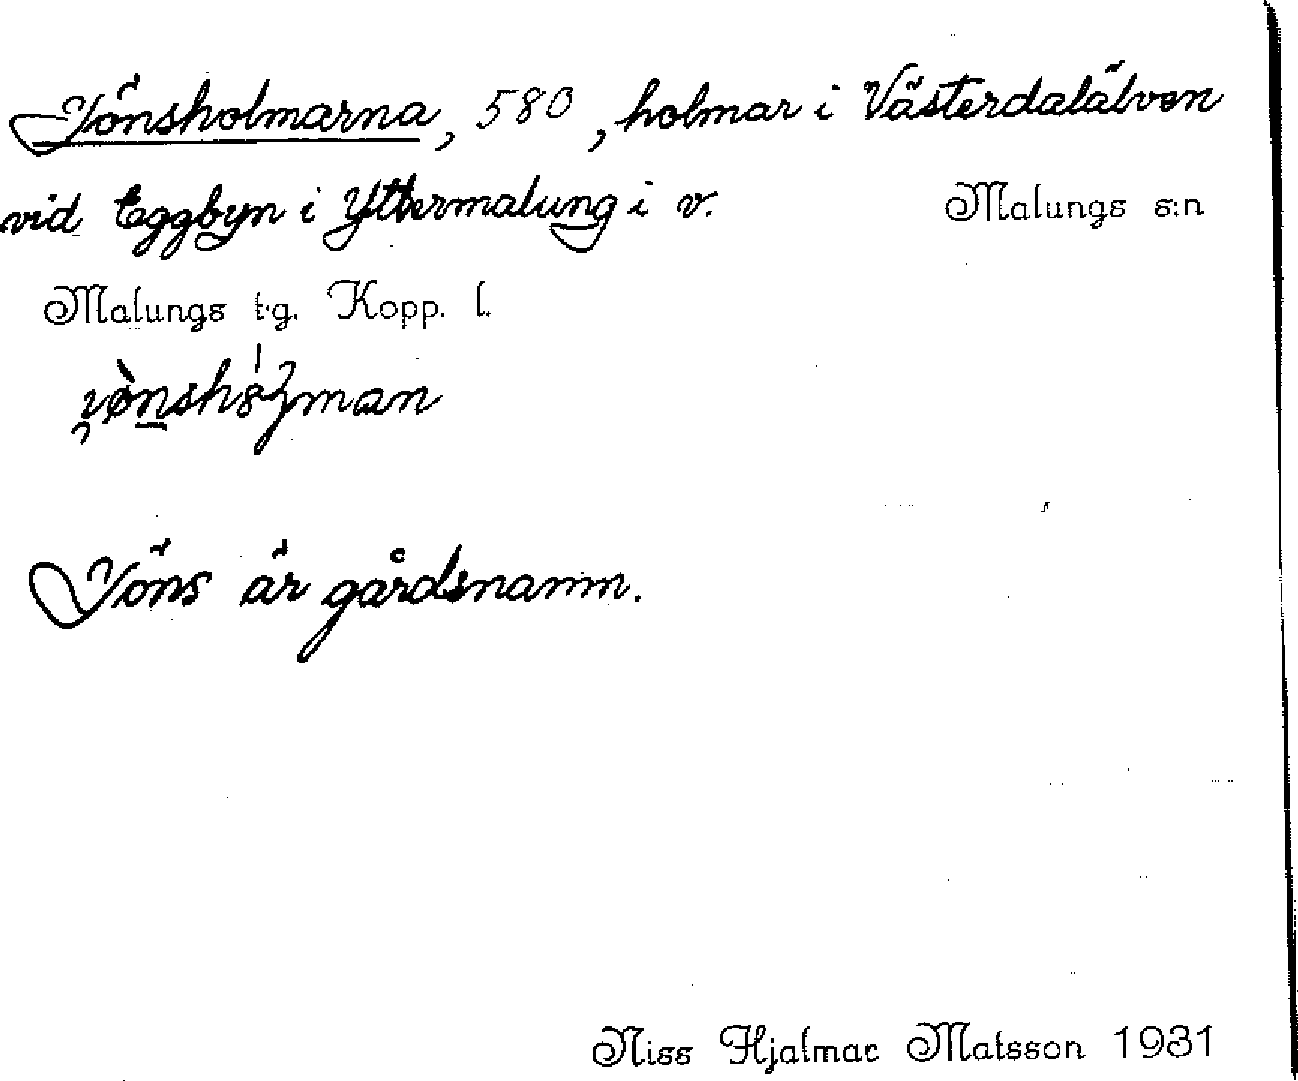 Jönsholmarna, 580, holmar i Västerdalälven
vid Eggbyn i Yttermalung i v. Malungs s:n
Malungs t·g. Kopp. l.
Jöns är gårdsnamn.
Niss Hjalmar Matsson 1931